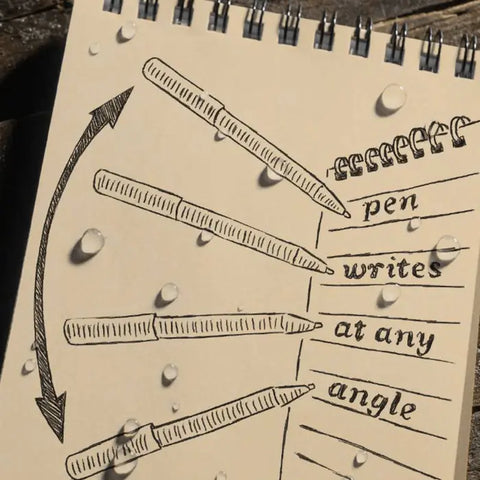 pen
writes
at any
angle